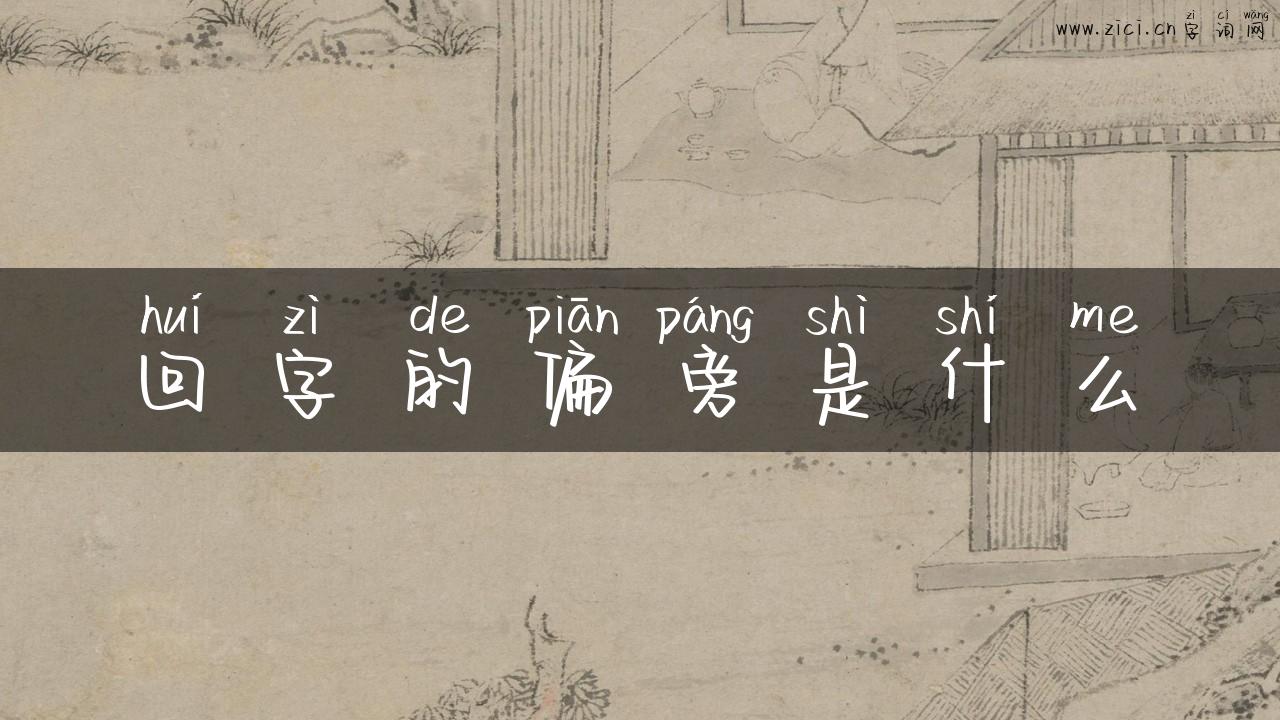 zì cí wǎng
www.zici.cn 字词网
huí zì de piān páng shì shí me
回字的偏旁是什么